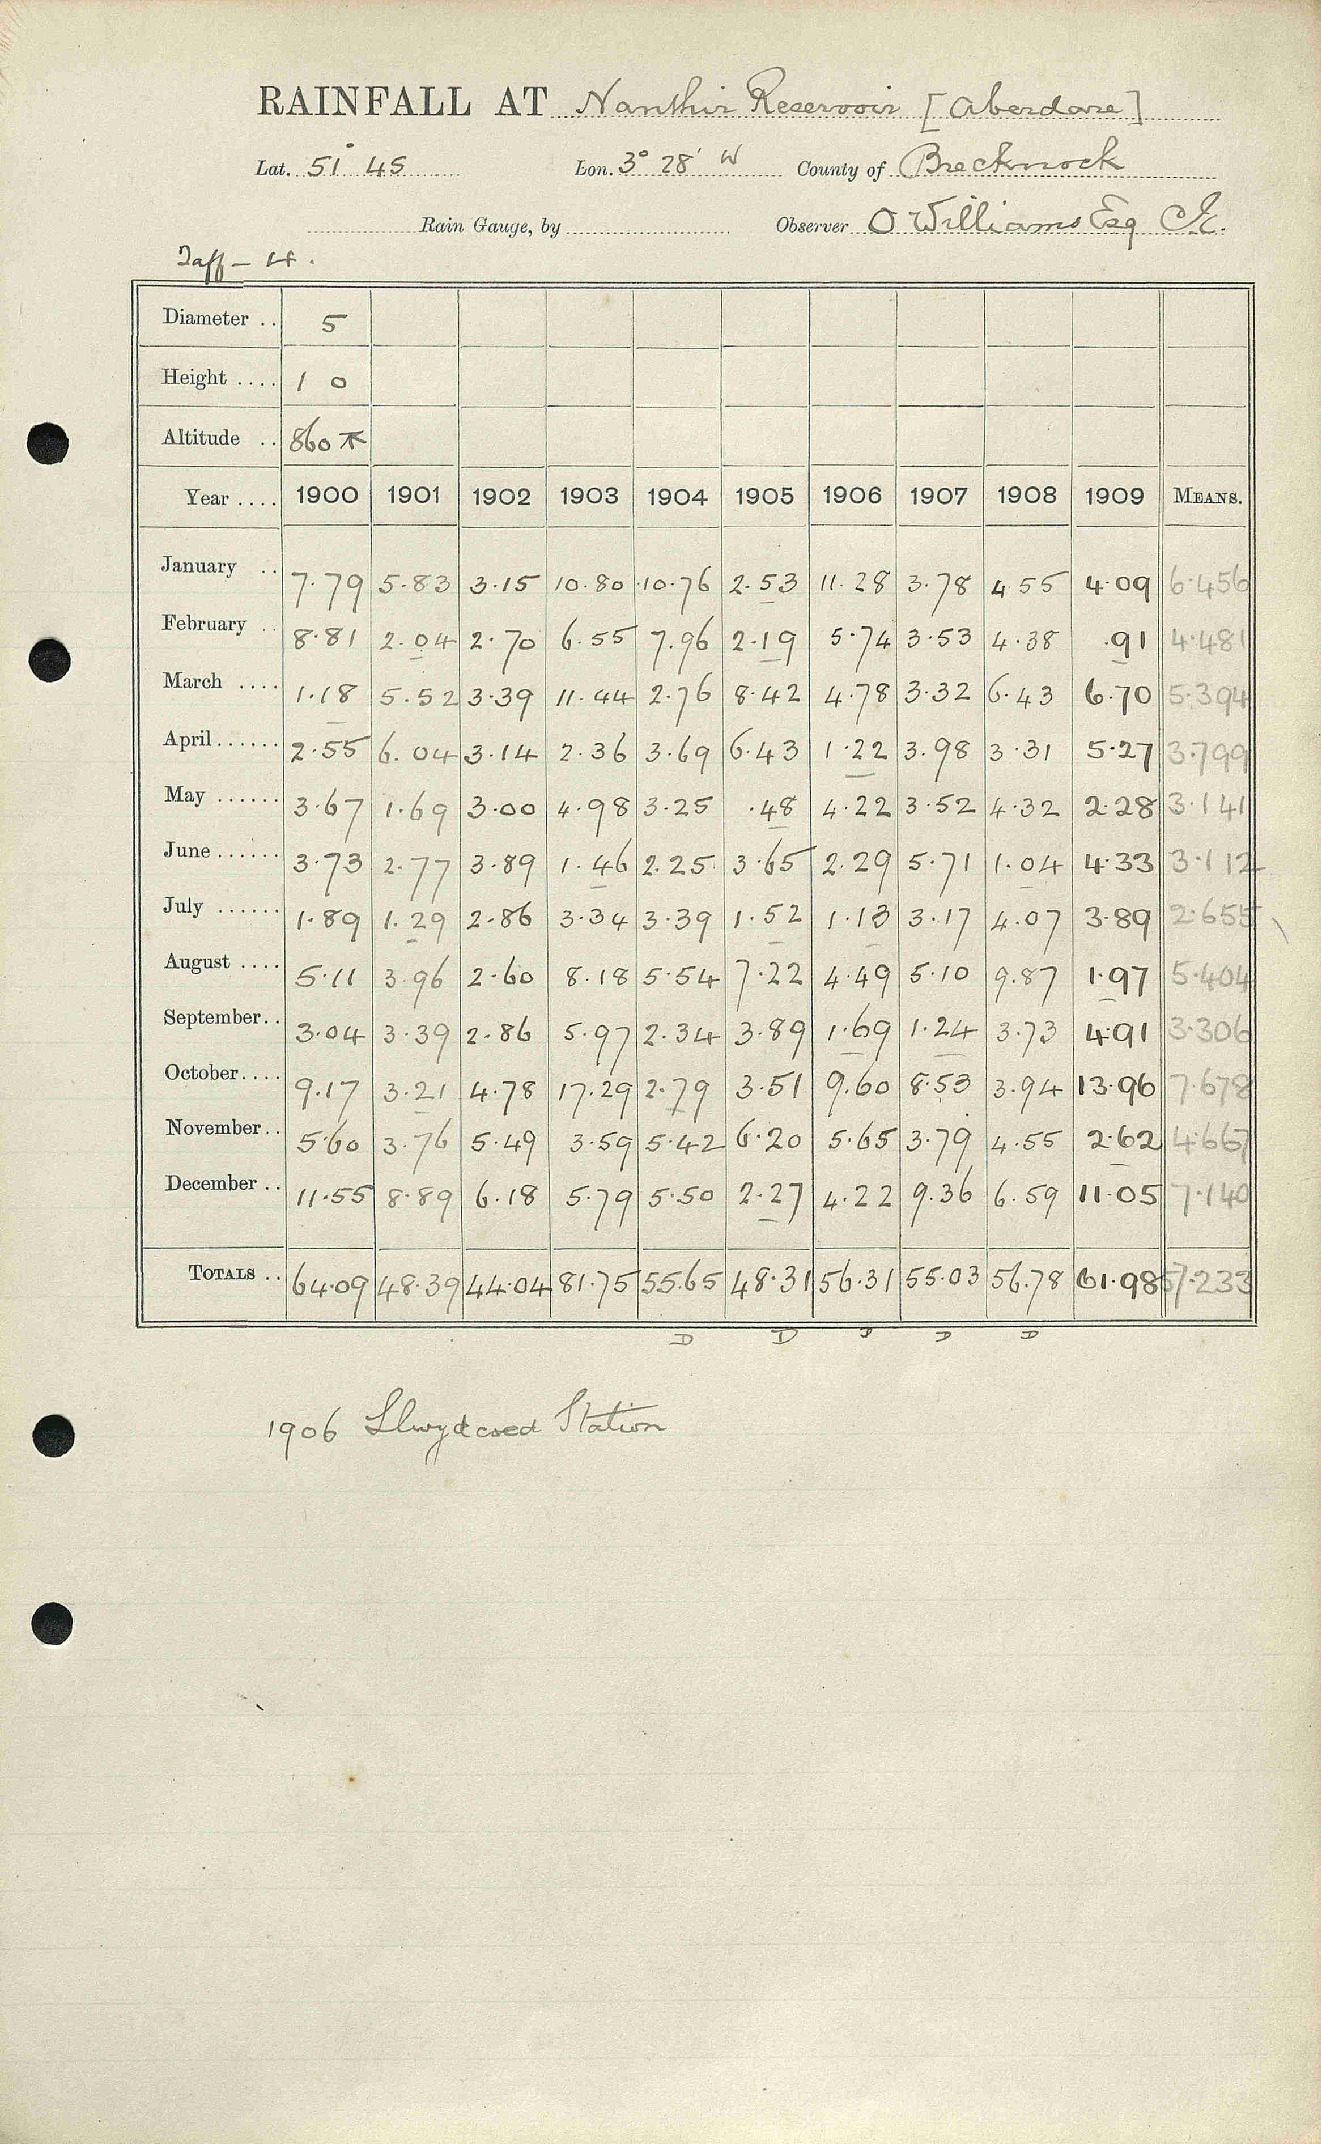 RAINFALL AT Nanthir Reservoir [Aberdare]
Lat. 51° 45 Lon. 3° 28' W County of Brecknock
Rain Gauge, by Observer O Williams Esq CE.
Taff - 14.
Diameter .. 5
Height .... 1 0
Altitude .. 860
Year .... 1900 1901 1902 1903 1904 1905 1906 1907 1908 1909 MEANS.
January .. 7.79 5.83 3.15 10.80 10.76 2.53 11.28 3.78 4.55 4.09 6.456
February .. 8.81 2.04 2.70 6.55 7.96 2.19 5.74 3.53 4.38 .91 4.481
March .... 1.18 5.52 3.39 11.44 2.76 8.42 4.78 3.32 6.43 6.70 5.394
April...... 2.55 6.04 3.14 2.36 3.69 6.43 1.22 3.98 3.31 5.27 3.799
May ...... 3.67 1.69 3.00 4.98 3.25 .48 4.22 3.52 4.32 2.28 3.141
June...... 3.73 2.77 3.89 1.46 2.25 3.65 2.29 5.71 1.04 4.33 3.112
July ...... 1.89 1.29 2.86 3.34 3.39 1.52 1.13 3.17 4.07 3.89 2.655
August .... 5.11 3.96 2.60 8.18 5.54 7.22 4.49 5.10 9.87 1.97 5.404
September.. 3.04 3.39 2.86 5.97 2.34 3.89 1.69 1.24 3.73 4.91 3.306
October.... 9.17 3.21 4.78 17.29 2.79 3.51 9.60 8.53 3.94 13.96 7.678
November.. 5.60 3.76 5.49 3.59 5.42 6.20 5.65 3.79 4.55 2.62 4.667
December .. 11.55 8.89 6.18 5.79 5.50 2.27 4.22 9.36 6.59 11.05 7.140
TOTALS .. 64.09 48.39 44.04 81.75 55.65 48.31 56.31 55.03 56.78 61.98 57.233
D D D D D
1906 Llwydcoed Station